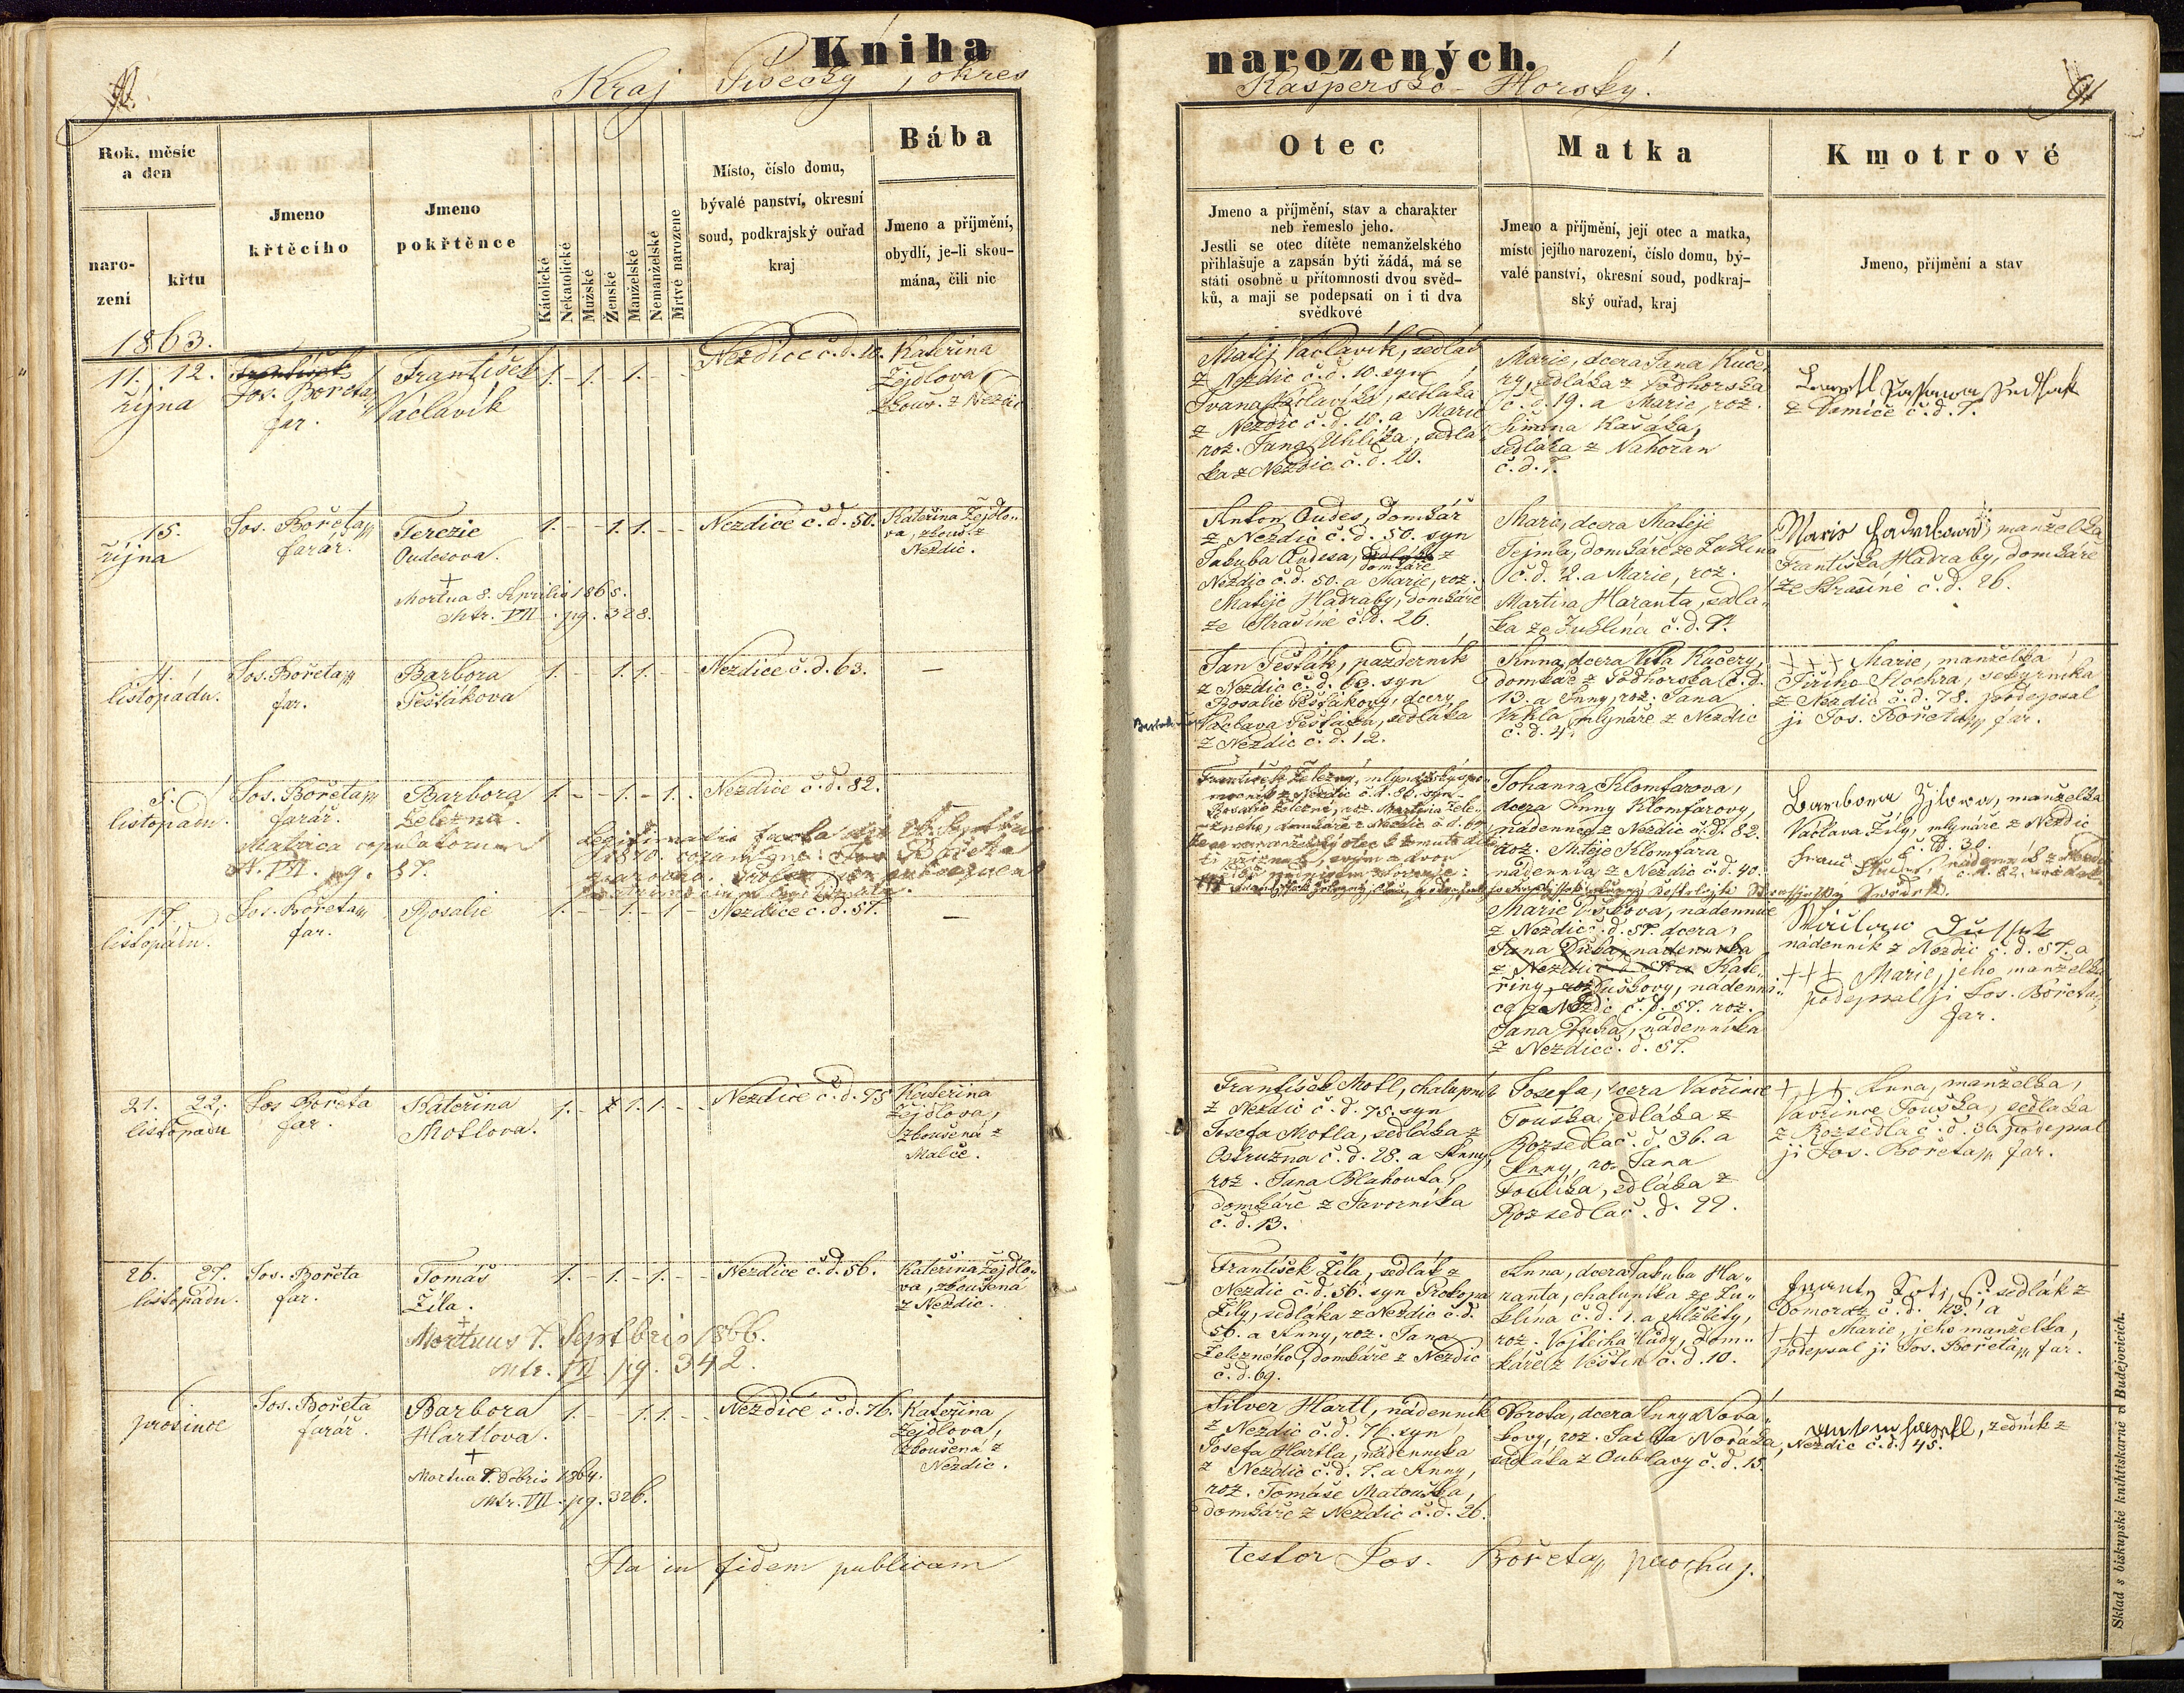 Kniha
narozených.
Kraj Písecký, okres
Kašpersko-Horský.
91
Rok, měsíc
a den
naro-
zení
křtu
Jmeno
křtěcího
Jmeno
pokřtěnce
Kátolické
Nekatolické
Mužské
Ženské
Manželské
Nemanželské
Mrtvé narozene
Místo, číslo domu,
bývalé panství, okresní
soud, podkrajský ouřad
kraj
Bába
Jmeno a příjmění,
obydlí, je-li skou-
mána, čili nic
Otec
Jmeno a příjmění, stav a charakter
neb řemeslo jeho.
Jestli se otec dítěte nemanželského
přihlašuje a zapsán býti žádá, má se
státi osobně u přítomnosti dvou svěd-
ků, a mají se podepsati on i ti dva
svědkové
Matka
Jmeno a příjmění, její otec a matka,
místo jejího narození, číslo domu, bý-
valé panství, okresní soud, podkraj-
ský ouřad, kraj
Kmotrové
Jmeno, příjmění a stav
1863.
11. 12.
října
František
Jos. Bořeta
far.
František
Václavík
1. - 1. - 1. - -
Nezdice č.d. 10.
Kateřina
Žejdlova
zkouš. z Nezdic
Matěj Václavík, sedlák
z Nezdic č.d. 10. syn
Ivana Václavíka, sedláka
z Nezdic č.d. 10. a Marie
roz. Jana Uhlíka, sedlá
ka z Nezdic č.d. 20.
Marie, dcera Jana Kuče,
ry, sedláka z Podhorska
č.d. 19. a Marie, roz.
Šimona Kašáka,
sedláka z Nahořan
č.d. 7.
z Damíče č.d. 7.
15.
října
Jos. Bořeta
farář.
Terezie
Oudesova.
+
Mortua 8. Aprilis 1865.
Mtr. VII. pg. 328.
1. - - 1. 1. - -
Nezdice č.d. 50.
Kateřina Žejdlo-
va, zkouš. z
Nezdic.
Anton Oudes, domkář
z Nezdic č.d. 50. syn
Jakuba Oudesa, sedláka z
domkáře
Nezdic č.d. 50. a Marie, roz.
Matěje Hadraby, domkáře
ze Strašíně č.d. 26.
Marie, dcera Matěje
Tejmla, domkáře ze Zuklína
č.d. 12. a Marie, roz.
Martina Haranta, sedlá-
ka ze Zuklína č.d. 7.
Marie Hadrabowa, manželka
Františka Hadraby, domkáře
ze Strašíně č.d. 26.
4.
listopádu.
Jos. Bořeta
far.
Barbora
Pešťákova
1. - - 1. 1. - -
Nezdice č.d. 63.
—
Jan Pešťák, pazderník
z Nezdic č.d. 63. syn
Rosalie Pešťákovy, dcery
Václava Pešťáka, sedláka
z Nezdic č.d. 12.
Anna, dcera Víta Kučery,
domkáře z Podhorska č.d.
13. a Anny, roz. Jana
Vrkla, mlynáře z Nezdic
č.d. 4.
+++ Marie, manželka
Jiřího Hoehra, sekyrníka
z Nezdic č.d. 78. podepsal
ji Jos. Bořeta, far.
5.
listopadu.
Jos. Bořeta
farář.
Barbora
Železná.
1. - - 1. - 1. -
Nezdice č.d. 82.
Matrica copulatorum
N. VII. pg. 87.
František Železný, mlynářský po-
mocník z Nezdic č.d. 86. syn
Rosalie Železné, roz. Martina Žele-
zného, domkáře z Nezdic č.d. 69.
Johanna Klomfarova,
dcera Anny Klomfarovy,
nádennice z Nezdic č.d. 82.
roz. Matěje Klomfara
nádenníka z Nezdic č.d. 40.
Barbora Žilowa, manželka
Václava Žíly, mlynáře z Nezdic
č.d. 30.
17.
listopádu.
Jos. Bořeta
far.
Rosalie
1. - - 1. - 1 -
Nezdice č.d. 57.
—
Marie Duškova, nádennice
z Nezdic č.d. 57. dcera
Jana Duška, nádenníka
z Nezdic č.d. 57. a Kate-
řiny, roz. Duškovy, nádenni-
ce z Nezdic č.d. 57. roz.
Jana Duška, nádenníka
z Nezdic č.d. 57.
nádenník z Nezdic č.d. 57. a
+++ Marie, jeho manželka
podepsal ji Jos. Bořeta,
far.
21. 22.
listopadu
Jos. Bořeta
far.
Kateřina
Motlova.
1. - 1. 1. - -
Nezdice č.d. 75
Kateřina
Žejdlova,
zkoušená z
Malče.
František Motl, chalupník
z Nezdic č.d. 75. syn
Josefa Motla, sedláka z
Ostružna č.d. 28. a Anny,
roz. Jana Blahouta,
domkáře z Javorníka
č.d. 13.
Josefa, dcera Vavřince
Touška, sedláka z
Rozsedla č.d. 36. a
Anny, roz. Jana
Toulíka, sedláka z
Rozsedla č.d. 29.
+++ Anna, manželka
Vavřince Touška, sedláka
z Rozsedla č.d. 36. podepsal
ji Jos. Bořeta, far.
26. 27.
listopádu.
Jos. Bořeta
far.
Tomáš
Žíla.
+
Mortuus 7. Septbris 1866.
Mtr. VII pg. 342.
1. - 1. - 1. - -
Nezdice č.d. 56.
Kateřina Žejdlo-
va, zkoušená
z Nezdic.
František Žíla, sedlák z
Nezdic č.d. 56. syn Prokopa
Žíly, sedláka z Nezdic č.d.
56. a Anny, roz. Jana
Železného, domkáře z Nezdic
č.d. 69.
Anna, dcera Jakuba Ha-
ranta, chalupníka ze Zu-
klína č.d. 1. a Alžběty,
roz. Vojtěcha Hůdy, dom-
káře z Věštín č.d. 10.
sedlák z
Domoraz č.d. 13. a
+++ Marie, jeho manželka,
podepsal ji Jos. Bořeta, far.
6.
prosince
Jos. Bořeta
farář.
Barbora
Hartlova.
+
Mortua 7. Xbris 1864.
Mtr. VII. pg. 326.
1. - - 1. 1. - -
Nezdice č.d. 76.
Kateřina
Žejdlova,
zkoušená z
Nezdic.
Silver Hartl, nádenník
z Nezdic č.d. 76. syn
Josefa Hartla, nádenníka
z Nezdic č.d. 7. a Anny,
roz. Tomáše Matouška,
domkáře z Nezdic č.d. 26.
Dorota, dcera Anny Nová-
kovy, roz. Jakuba Nováka,
sedláka z Oublavy č.d. 15.
zedník z
Nezdic č.d. 45.
Ita in fidem publicam
testor Jos. Bořeta parochus.
Sklad s biskupské knihtiskarně v Budějovicích.